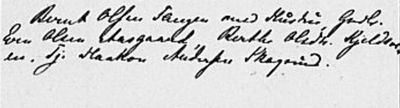 Bernt Olsen Tangen med Hustru, Gudb.
Even Olsen Aasgaard Berthe Olsdtr. Kjeldsv
en. Tj. Haakon Andersen Skagrind.